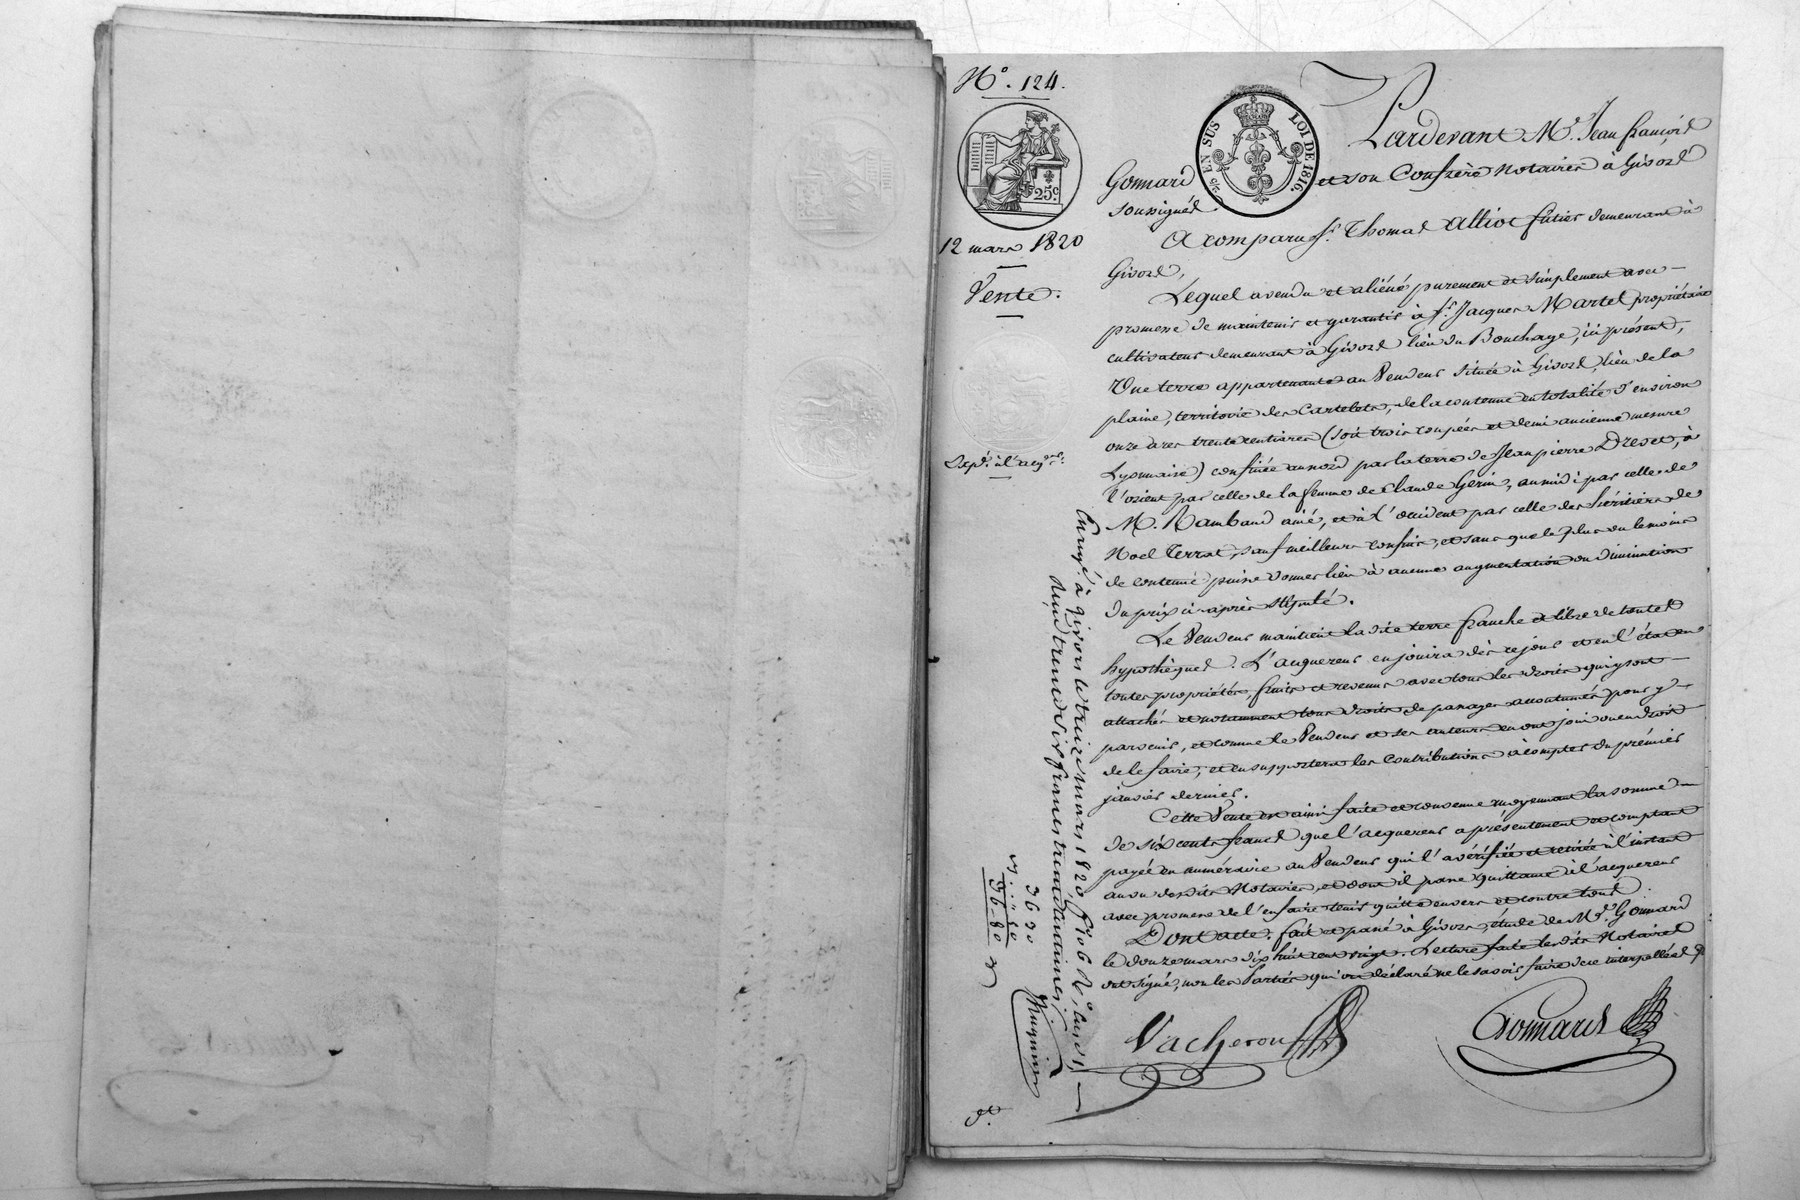 N.° 124.
25c.
EN SUS LOI DE 1816.
12 mars 1820
Vente.
Expé. à l'acqr.
Pardevant Me. Jean françois
Gonnard et son Confrère Notaires à Givors
soussignés.
A comparu sr. Thomas Alliot futier demeurant à
Givors,
Lequel a vendu et aliéné purement et simplement avec
promesse de maintenir et garantir à sr. Jacques Martel propriétaire
cultivateur demeurant à Givors lieu du Bouchage, ici présent,
Une terre appartenante au Vendeur située à Givors, lieu de la
plaine, territoire des Cartelets, de la contenue en totalité d'environ
onze ares trente centiares (soit trois coupées et demi ancienne mesure
Lyonnaise) confinée au nord par la terre de Jean pierre Drevet, à
l'orient par celle de la femme de Claude Gerin, au midi par celle de
M. Rambaud ainé, et à l'occident par celle des héritiers de
Noel Terrat, sauf meilleurs confins, et sans que le plus ou le moins
de contenue puisse donner lieu à aucune augmentation ou diminution
du prix ci-après stipulé.
Le Vendeur maintient la dite terre franche et libre de toutes
hypothèques. L'acquereur en jouira dès ce jour et en l'état en
toutes propriétés, fruits et revenus avec tous les droits qui y sont
attachés et notamment tous droits de passages accoutumés pour y
parvenir, et comme le Vendeur et ses auteurs en ont joui ou eu droit
de le faire, et en supportera les contributions à compter du premier
janvier dernier.
Cette Vente est ainsi faite et convenue moyennant la somme
de six cents francs que l'acquereur a présentement et comptant
payée en numéraire au Vendeur qui l'a vérifiée et retirée à l'instant
au vu desdits Notaires, et dont il passe quittance à l'acquereur
avec promesse de l'en faire tenir quitte envers et contre tous.
Dont acte. fait et passé à Givors, étude de Me. Gonnard
le douze mars dix huit cent vingt. Lecture faite lesdits Notaires
ont signé, non les Parties qui ont déclaré ne le savoir faire de ce interpellées
Vacheron
Gonnard
Enregé. à givors le treize mars 1820 fo. 106 Ro.
Reçu trente six francs trente centimes
36 30